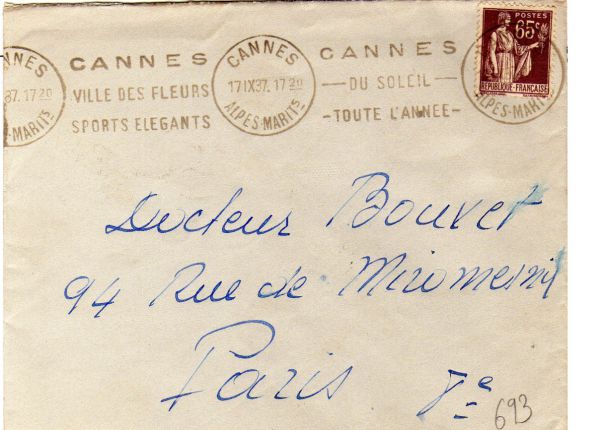 NNES CANNES CANNES CANNES POSTES 65c
37.17 20 VILLE DES FLEURS 17 IX 37. 17 20 —DU SOLEIL— REPUBLIQUE-FRANÇAISE
-MARITs SPORTS ELEGANTS ALPES-MARITs -TOUTE L'ANNEE- ALPES-MARITs
Docteur Bouvet
94 Rue de Miromesnil
Paris
693